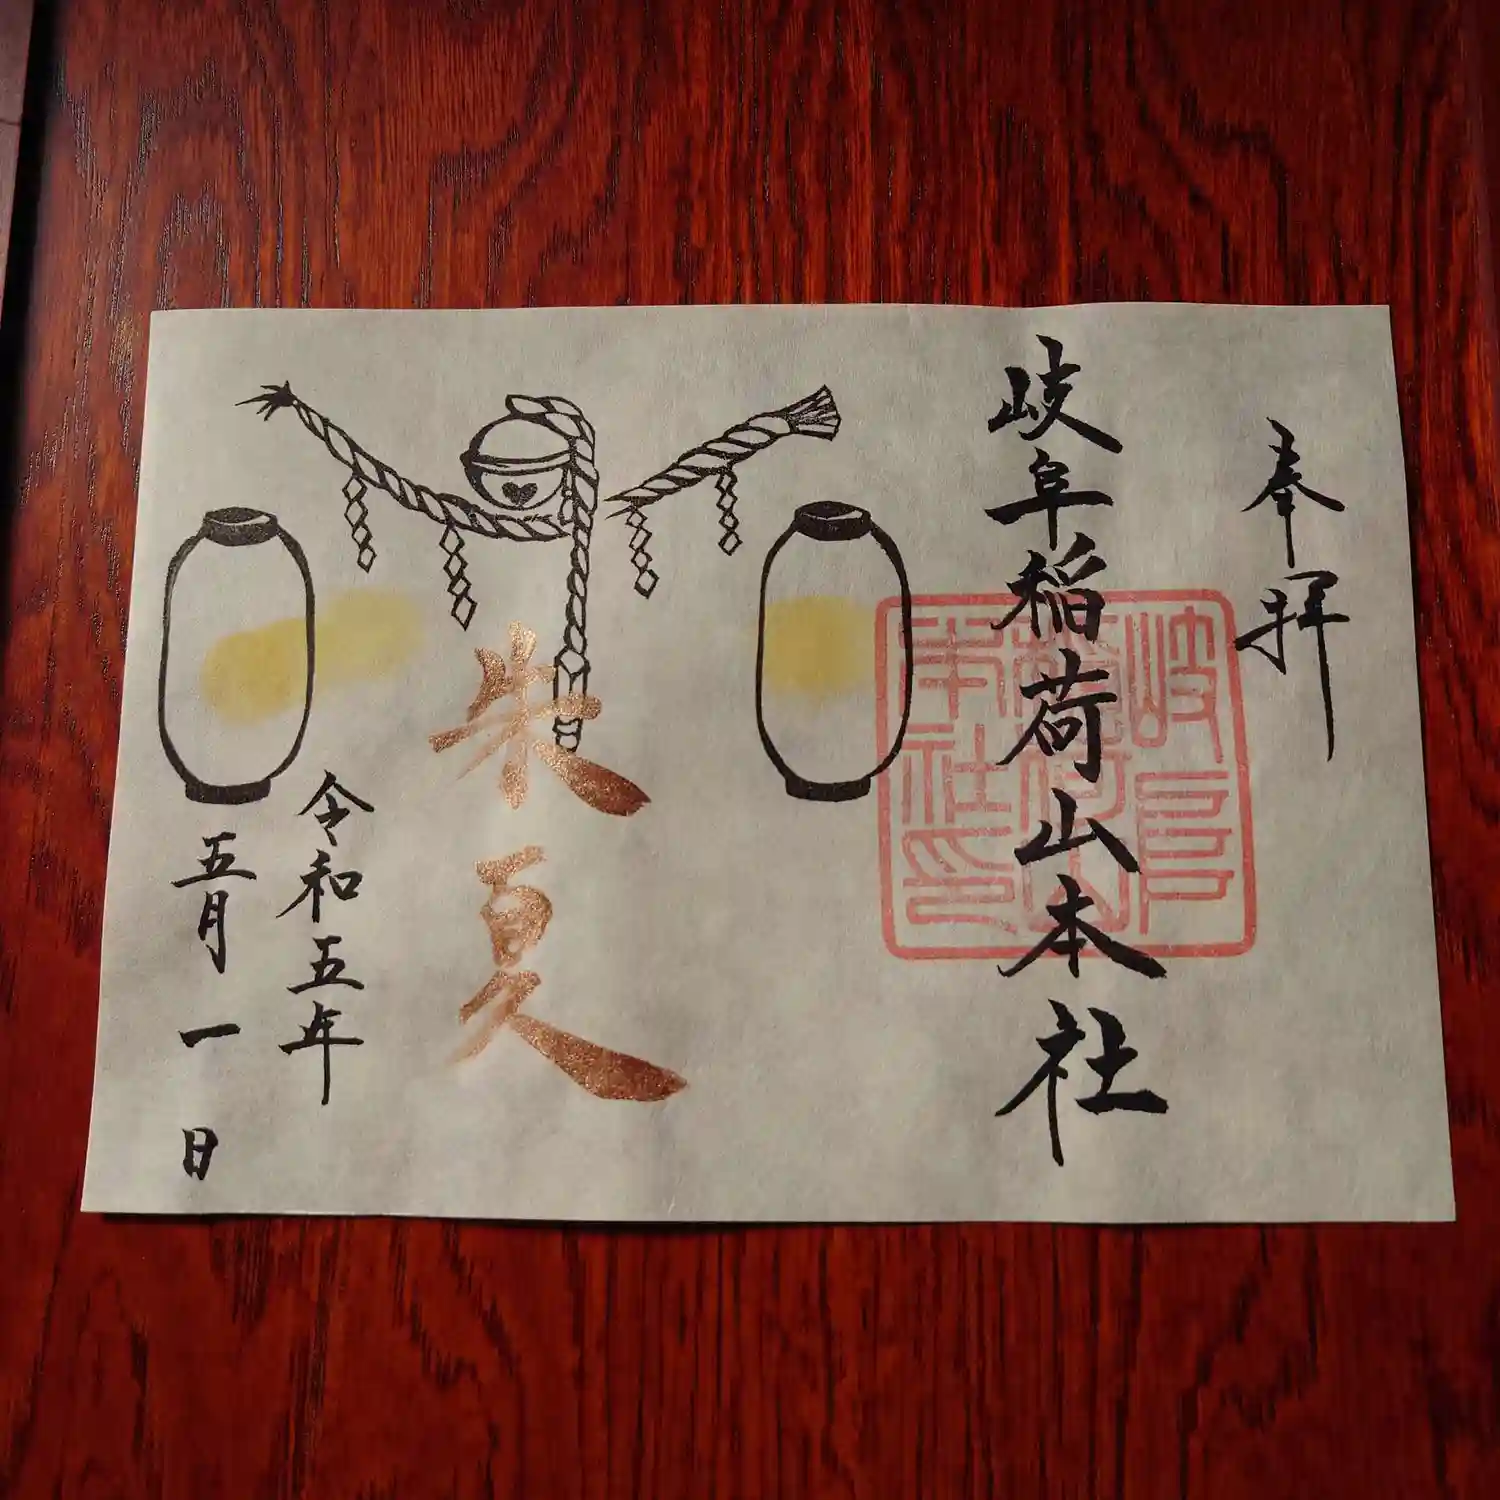 奉拝
岐阜稲荷山本社
岐阜
稲荷山
本社印
朱夏
令和五年
五月一日